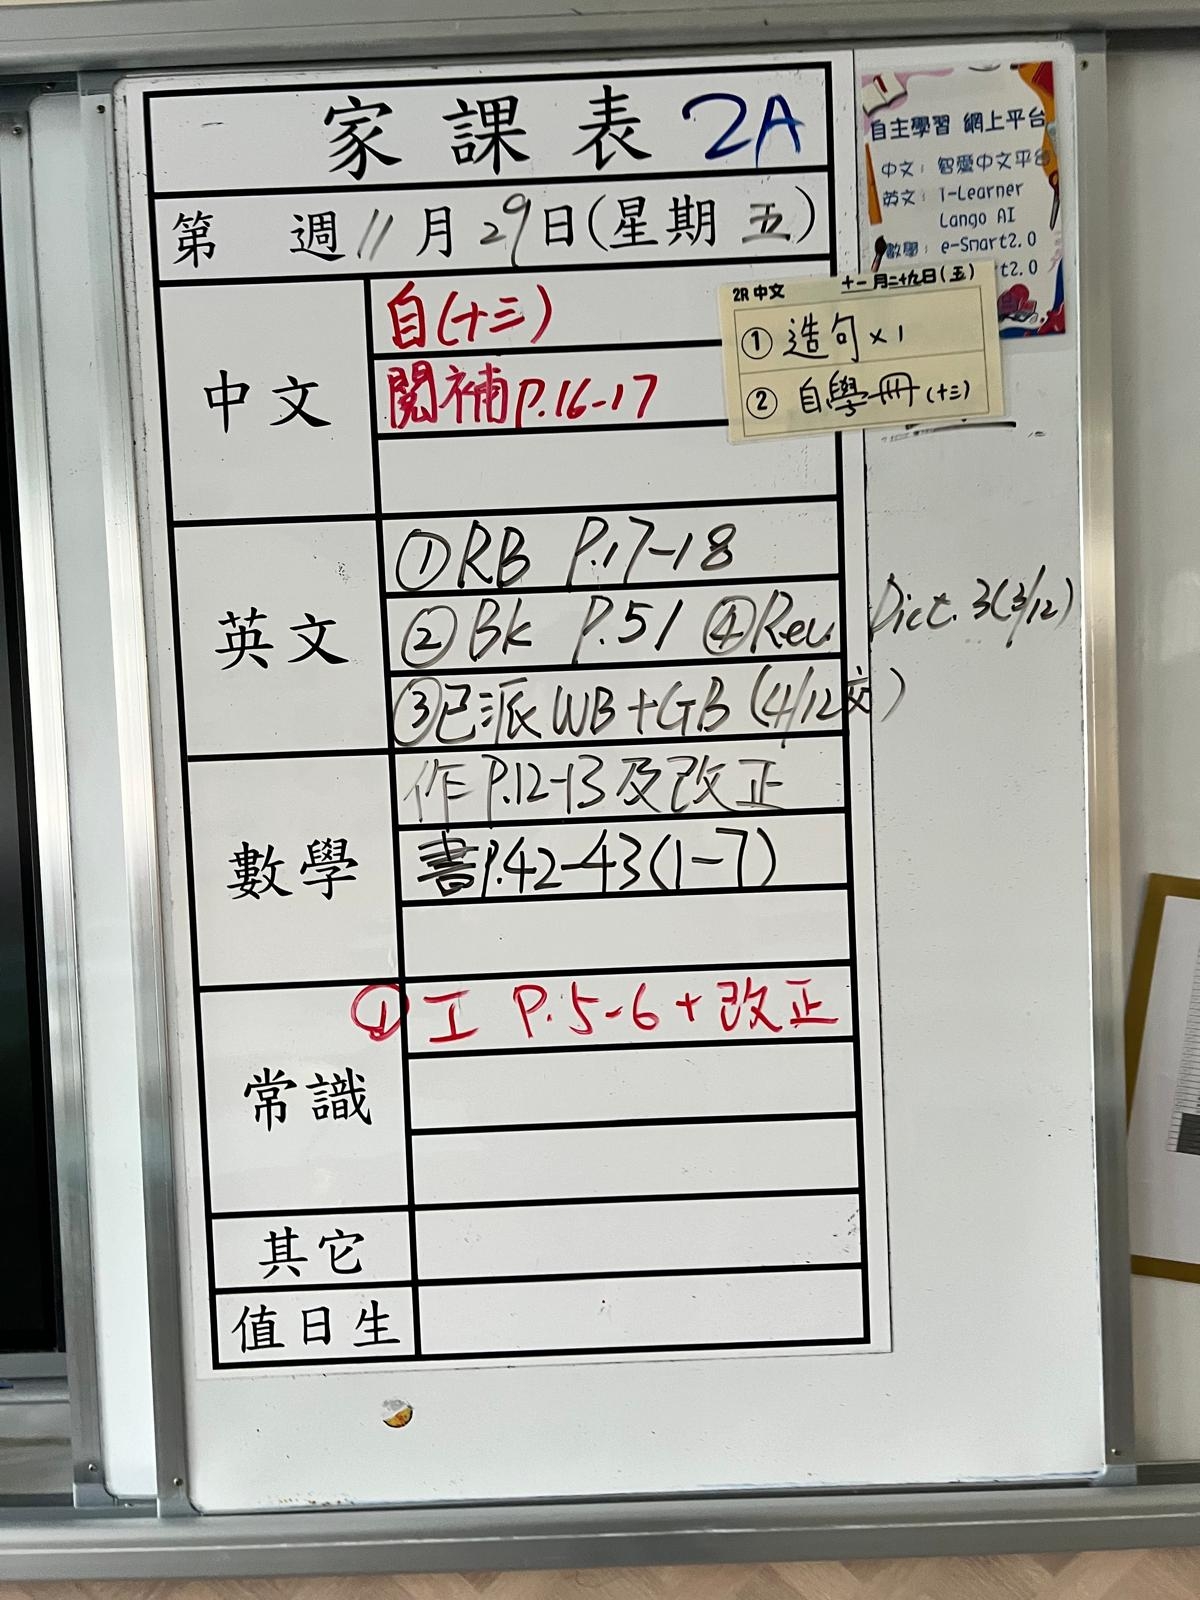 家課表 2A
第 週 11月29日(星期五)
中文
自(十三)
閱補 P.16-17
英文
①RB P.17-18
②Bk P.51 ④Rev. Dict. 3(3/12)
③已派 WB+GB (4/12交)
數學
作 P.12-13及改正
書 P.42-43(1-7)
常識
① 工 P.5-6 + 改正
其它
值日生
自主學習 網上平台
中文: 智愛中文平台
英文: i-Learner
Lango AI
數學: e-Smart2.0
t2.0
2R 中文 十一月二十九日(五)
① 造句 x 1
② 自學冊 (十三)